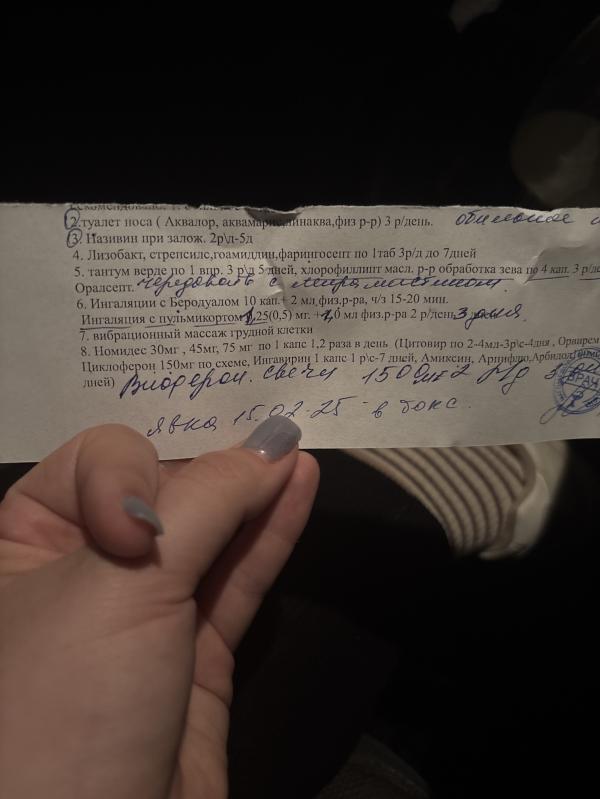 2. туалет носа ( Аквалор, аквамарис, линаква,физ р-р) 3 р/день. обильное
3. Називин при залож. 2р\д-5д
4. Лизобакт, стрепсилс,гоамидлин,фарингосепт по 1таб 3р/д до 7дней
5. тантум верде по 1 впр. 3 р\д 5дней, хлорофиллипт масл. р-р обработка зева по 4 кап. 3 р/де
Оралсепт. чередовать с мирамистином.
6. Ингаляции с Беродуалом 10 кап.+ 2 мл,физ.р-ра, ч/з 15-20 мин.
Ингаляция с пульмикортом 0,25(0,5) мг. + ,0 мл физ.р-ра 2 р/день 3 дня.
7. вибрационный массаж грудной клетки
8. Номидес 30мг , 45мг, 75 мг по 1 капс 1,2 раза в день (Цитовир по 2-4мл-3р\с-4дня , Орвирем
Циклоферон 150мг по схеме, Ингавирин 1 капс 1 р\с-7 дней, Амиксин, Арпифлю,Арбидол
дней) Виферон свечи 150 2 р/д
явка 15.02.25 в бокс.
ВРАЧ